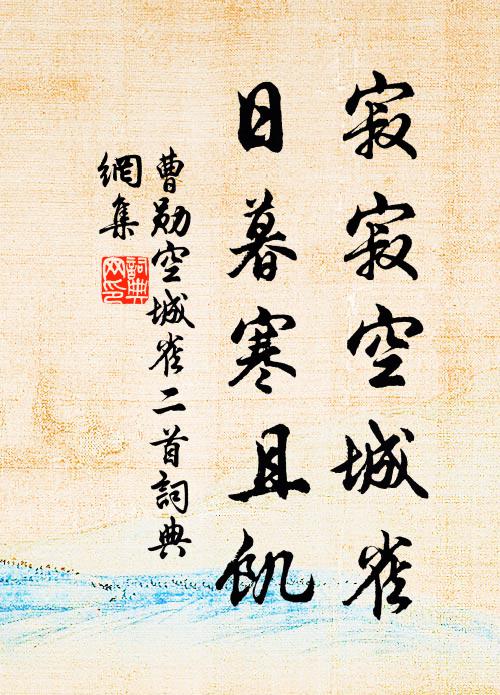 寂寂空城雀
日暮寒且飢
曹勛空城雀二首詞典
網集
詞典
网印